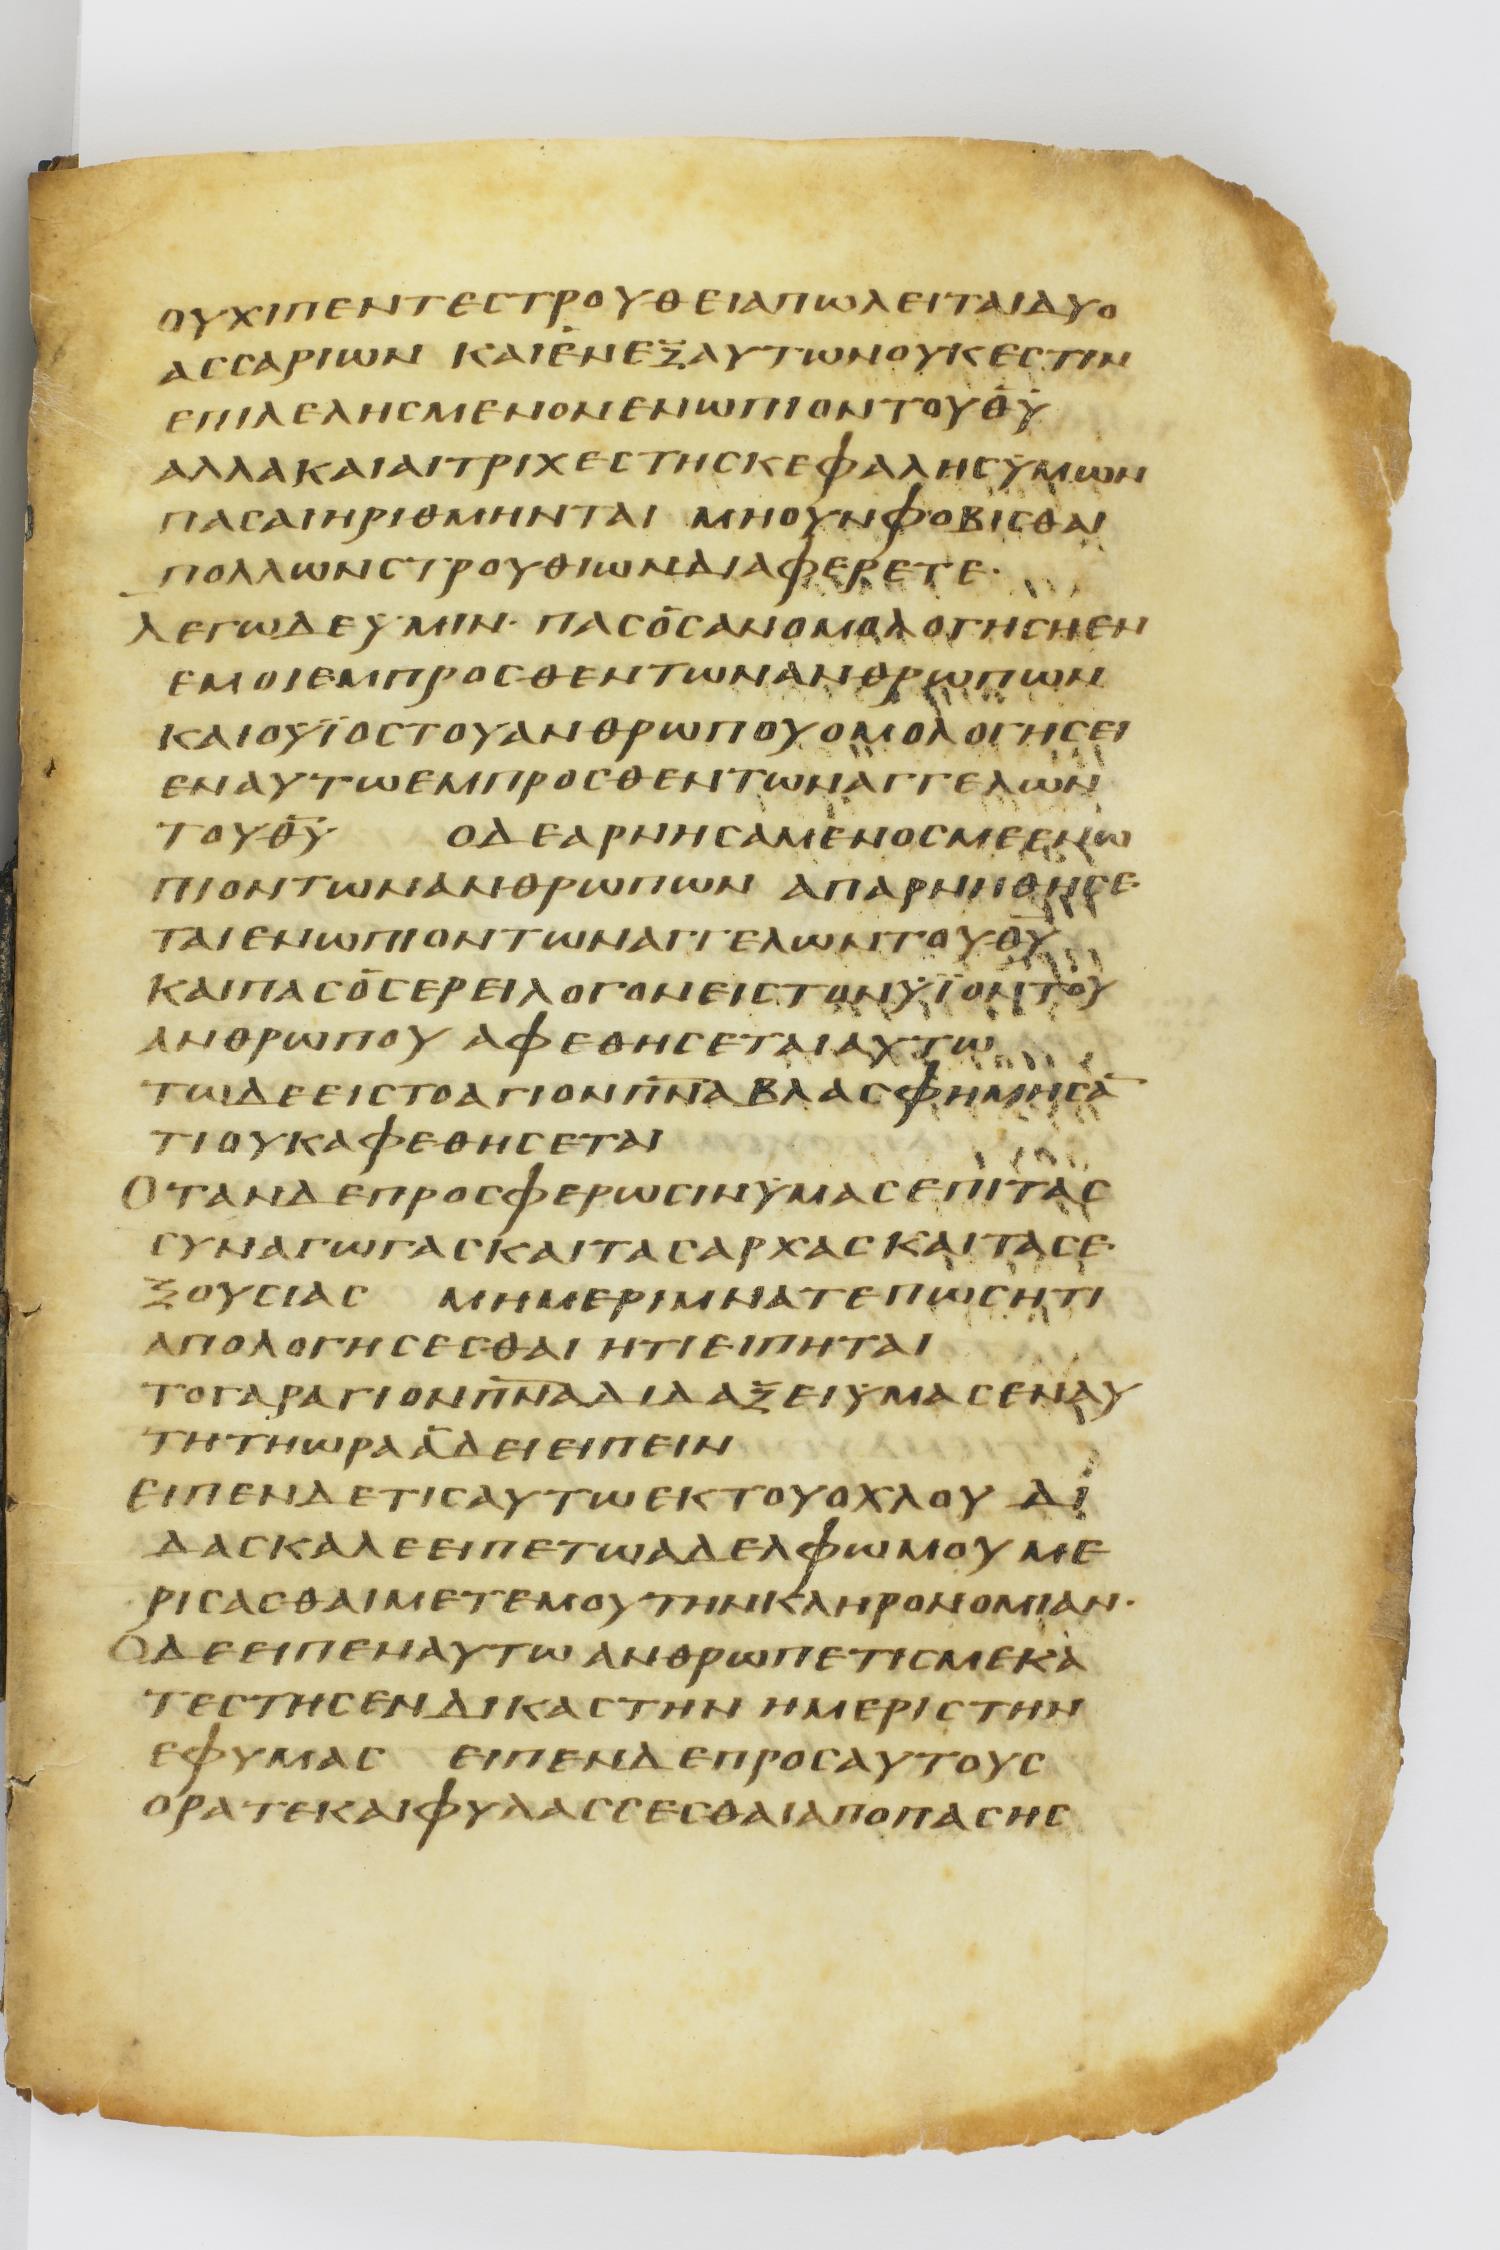 ΟΥΧΙΠΕΝΤΕΣΤΡΟΥΘΕΙΑΠΩΛΕΙΤΑΙΔΥΟ
ΑΣΣΑΡΙΩΝ ΚΑΙΕΝΕΞΑΥΤΩΝΟΥΚΕΣΤΙΝ
ΕΠΙΛΕΛΗΣΜΕΝΟΝΕΝΩΠΙΟΝΤΟΥΘ̅Υ̅
ΑΛΛΑΚΑΙΑΙΤΡΙΧΕΣΤΗΣΚΕΦΑΛΗΣΫΜΩΝ
ΠΑΣΑΙΗΡΙΘΜΗΝΤΑΙ ΜΗΟΥΝΦΟΒΙΣΘΑΙ
ΠΟΛΛΩΝΣΤΡΟΥΘΙΩΝΔΙΑΦΕΡΕΤΕ·
ΛΕΓΩΔΕΫΜΙΝ· ΠΑΣΟΣΑΝΟΜΟΛΟΓΗΣΗΕΝ
ΕΜΟΙΕΜΠΡΟΣΘΕΝΤΩΝΑΝΘΡΩΠΩΝ
ΚΑΙΟΥΪΟΣΤΟΥΑΝΘΡΩΠΟΥΟΜΟΛΟΓΗΣΕΙ
ΕΝΑΥΤΩΕΜΠΡΟΣΘΕΝΤΩΝΑΓΓΕΛΩΝ
ΤΟΥΘ̅Υ̅ ΟΔΕΑΡΝΗΣΑΜΕΝΟΣΜΕΕΝΩ
ΠΙΟΝΤΩΝΑΝΘΡΩΠΩΝ ΑΠΑΡΝΗΘΗΣΕ
ΤΑΙΕΝΩΠΙΟΝΤΩΝΑΓΓΕΛΩΝΤΟΥΘ̅Υ̅
ΚΑΙΠΑΣΟΣΕΡΕΙΛΟΓΟΝΕΙΣΤΟΝΫΪΟΝΤΟΥ
ΑΝΘΡΩΠΟΥ ΑΦΕΘΗΣΕΤΑΙΑΥΤΩ
ΤΩΔΕΕΙΣΤΟΑΓΙΟΝΠ̅Ν̅Α̅ΒΛΑΣΦΗΜΗΣΑ̅
ΤΙΟΥΚΑΦΕΘΗΣΕΤΑΙ
ΟΤΑΝΔΕΠΡΟΣΦΕΡΩΣΙΝΫΜΑΣΕΠΙΤΑΣ
ΣΥΝΑΓΩΓΑΣΚΑΙΤΑΣΑΡΧΑΣΚΑΙΤΑΣΕ
ΞΟΥΣΙΑΣ ΜΗΜΕΡΙΜΝΑΤΕΠΩΣΗΤΙ
ΑΠΟΛΟΓΗΣΕΣΘΑΙ ΗΤΙΕΙΠΗΤΑΙ
ΤΟΓΑΡΑΓΙΟΝΠ̅Ν̅Α̅ΔΙΔΑΞΕΙΫΜΑΣΕΝΑΥ
ΤΗΤΗΩΡΑΑΔΕΙΕΙΠΕΙΝ
ΕΙΠΕΝΔΕΤΙΣΑΥΤΩΕΚΤΟΥΟΧΛΟΥ ΔΙ
ΔΑΣΚΑΛΕΕΙΠΕΤΩΑΔΕΛΦΩΜΟΥΜΕ
ΡΙΣΑΣΘΑΙΜΕΤΕΜΟΥΤΗΝΚΛΗΡΟΝΟΜΙΑΝ·
ΟΔΕΕΙΠΕΝΑΥΤΩ ΑΝΘΡΩΠΕΤΙΣΜΕΚΑ
ΤΕΣΤΗΣΕΝΔΙΚΑΣΤΗΝ ΗΜΕΡΙΣΤΗΝ
ΕΦΥΜΑΣ ΕΙΠΕΝΔΕΠΡΟΣΑΥΤΟΥΣ
ΟΡΑΤΕΚΑΙΦΥΛΑΣΣΕΣΘΑΙΑΠΟΠΑΣΗΣ